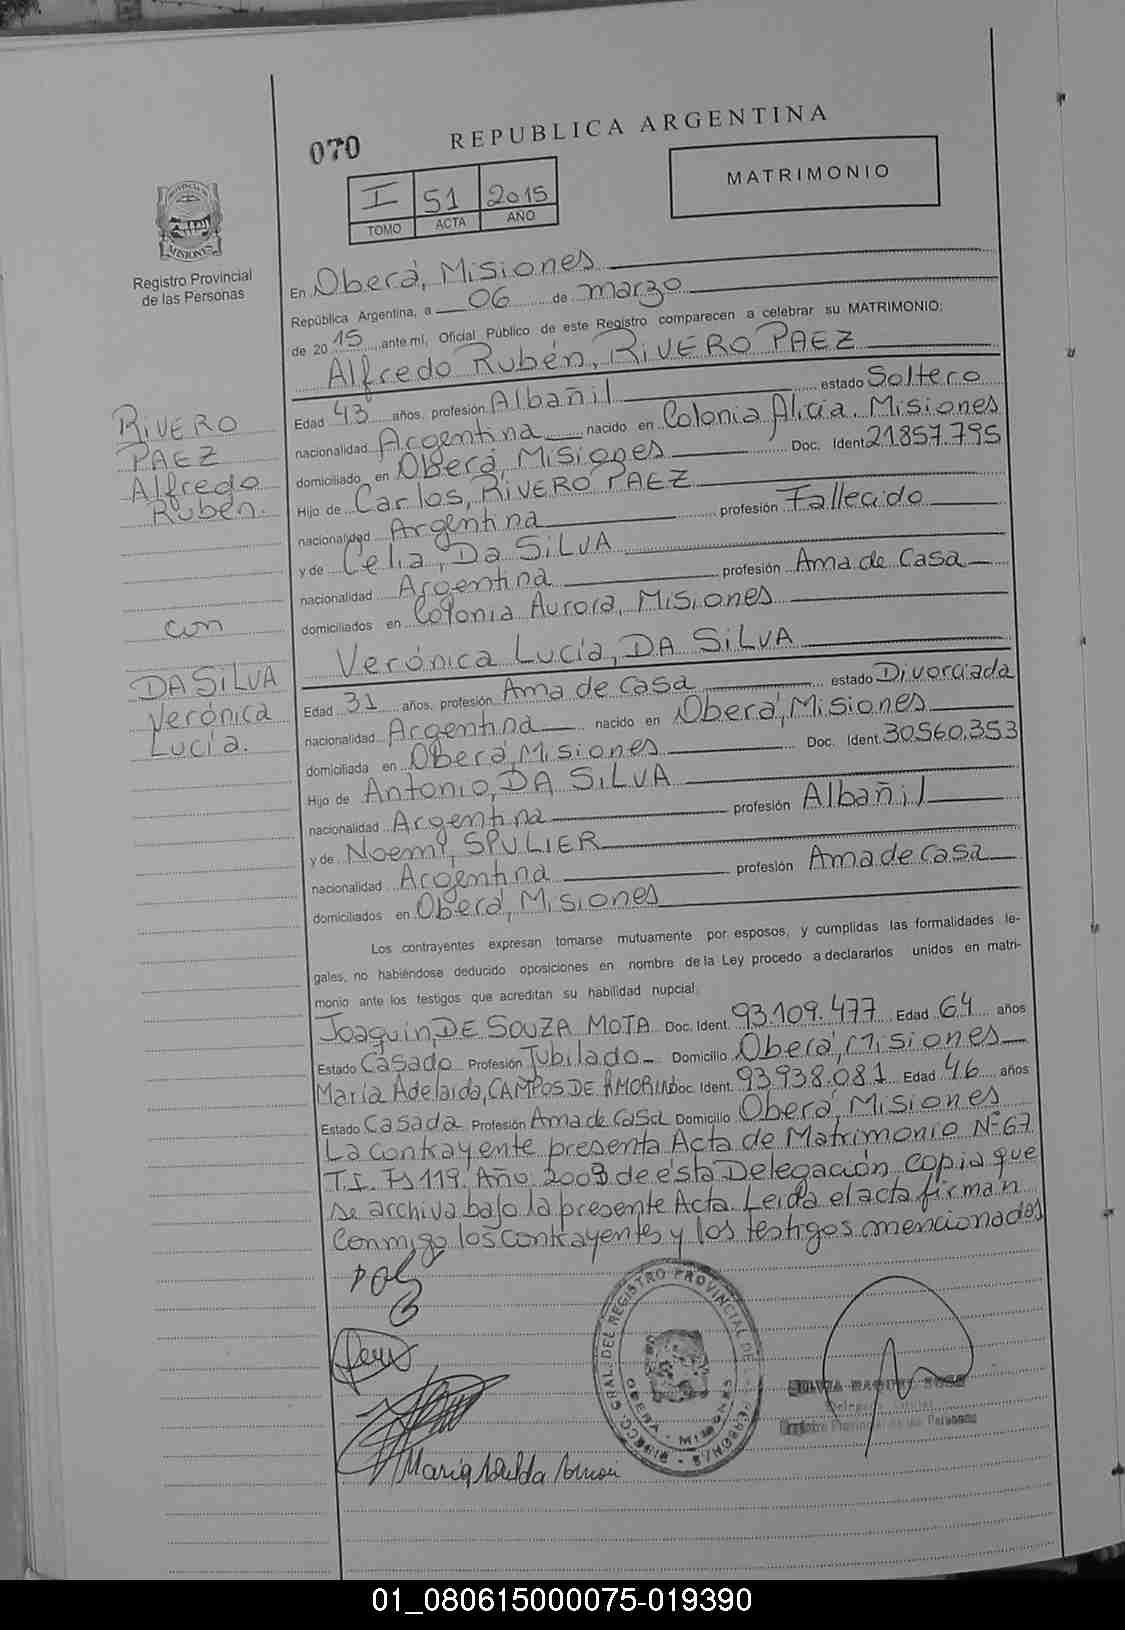 070
REPUBLICA ARGENTINA
MATRIMONIO
I 51 2015
TOMO ACTA AÑO
PROVINCIA DE
MISIONES
Registro Provincial
de las Personas
En Oberá, Misiones
República Argentina, a 06 de marzo
de 20 15 ,ante mí, Oficial Público de este Registro comparecen a celebrar su MATRIMONIO:
Alfredo Rubén, RIVERO PAEZ
Edad 43 años, profesión Albañil estado Soltero
nacionalidad Argentina nacido en Colonia Alicia, Misiones
domiciliado en Oberá, Misiones Doc. Ident. 21.857.795
Hijo de Carlos, RIVERO PAEZ
nacionalidad Argentina profesión Fallecido
y de Celia, DA SILVA
nacionalidad Argentina profesión Ama de Casa
domiciliados en Colonia Aurora, Misiones
Verónica Lucía, DA SILVA
Edad 31 años, profesión Ama de casa estado Divorciada
nacionalidad Argentina nacido en Oberá, Misiones
domiciliada en Oberá, Misiones Doc. Ident. 30.560.353
Hijo de Antonio, DA SILVA
nacionalidad Argentina profesión Albañil
y de Noemí, SPULIER
nacionalidad Argentina profesión Ama de casa
domiciliados en Oberá, Misiones
RIVERO
PAEZ
Alfredo
Rubén.
con
DA SILVA
Verónica
Lucía.
Los contrayentes expresan tomarse mutuamente por esposos, y cumplidas las formalidades le-
gales, no habiéndose deducido oposiciones en nombre de la Ley procedo a declararlos unidos en matri-
monio ante los testigos que acreditan su habilidad nupcial:
Joaquin, DE SOUZA MOTA Doc. Ident. 93.109.477 Edad 64 años
Estado Casado Profesión Jubilado Domicilio Oberá, Misiones
María Adelaida, CAMPOS DE AMORIN Doc. Ident. 93.938.081 Edad 46 años
Estado Casada Profesión Ama de Casa Domicilio Oberá, Misiones
La contrayente presenta Acta de Matrimonio Nº 67
T.I. Fs 119. Año 2003 de ésta Delegación copia que
se archiva bajo la presente Acta. Leída el acta firman
conmigo los contrayentes y los testigos mencionados
DIRECC. GRAL. DEL REGISTRO PROVINCIAL DE PERSONAS
OBERA - MISIONES
SILVIA RAQUEL SOSA
Registro Provincial de las Personas
01_080615000075-019390